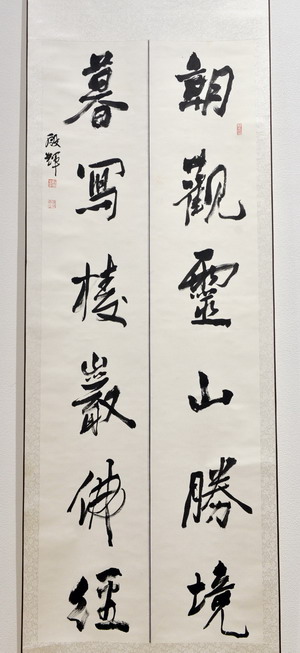 朝觀靈山勝境
暮寫棱嚴佛經
殿輝